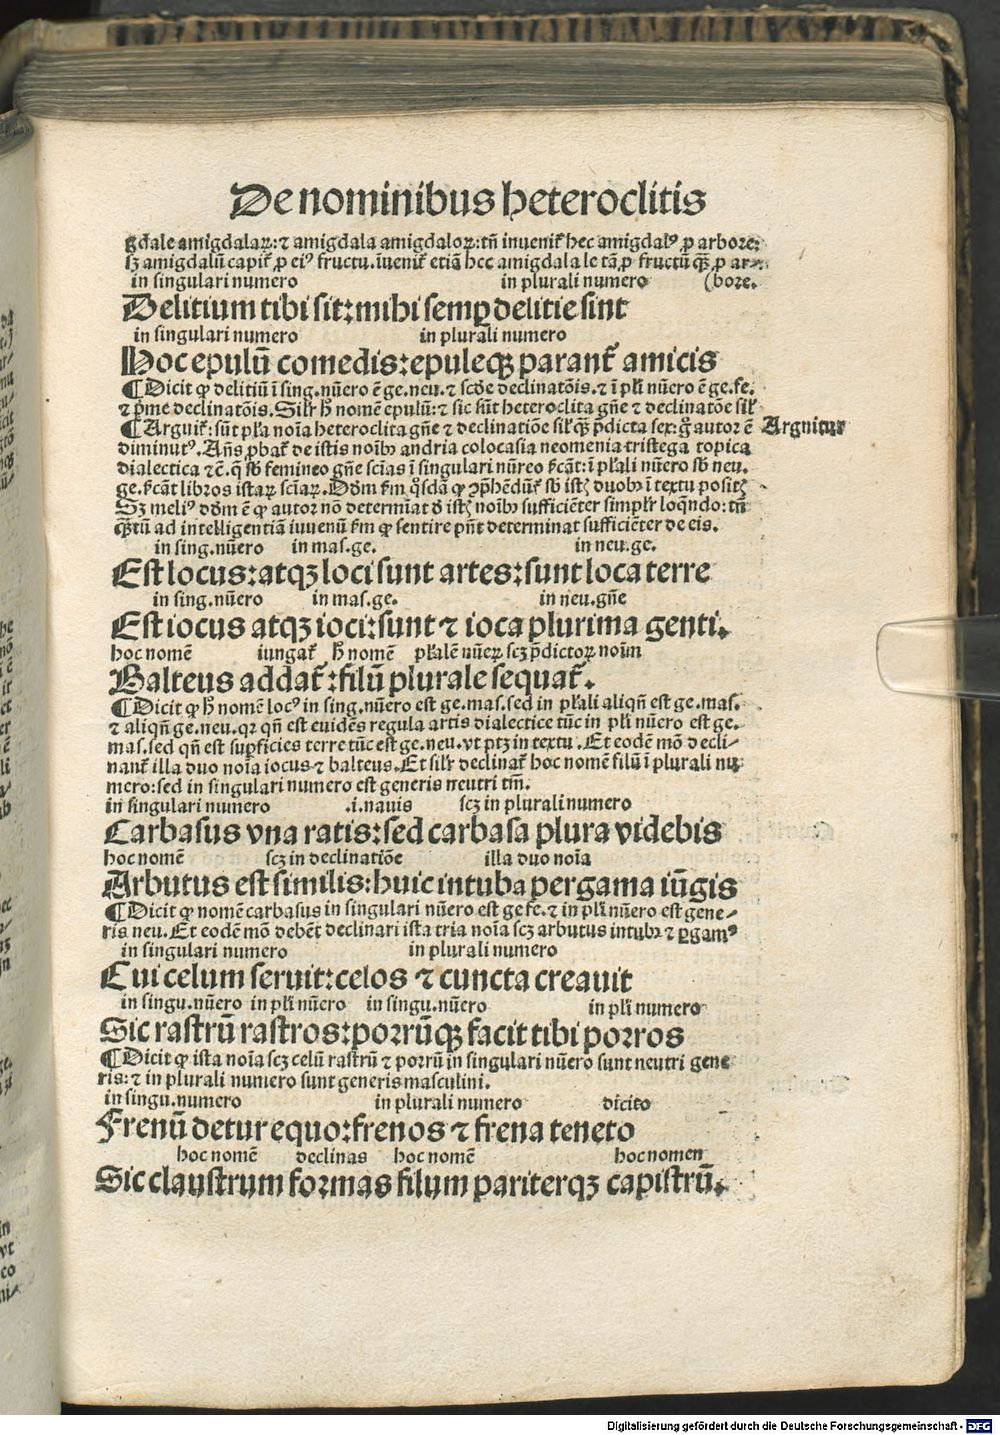 De nominibus heteroclitis
gdale amigdalaꝝ: ⁊ amigdala amigdaloꝝ: tñ inuenit̃ hec amigdalꝰ ꝓ arbore:
sꝫ amigdalũ capit̃ ꝓ eiꝰ fructu. inuenit̃ etiã hec amigdala le tã ꝓ fructũ qꝫ̃ ꝓ ar-
in singulari numero in plurali numero (bore.
Delitium tibi sit: mihi semꝑ delitie sint
in singulari numero in plurali numero
Hoc epulũ comedis: epuleqꝫ parant̃ amicis
¶ Dicit ꝙ delitiũ ĩ sing. nũero ẽ ge. neu. ⁊ scđe declinatõis. ⁊ ĩ pl̃i nũero ẽ ge. fe.
⁊ p̃me declinatõis. Sil̃r h̃ nomẽ epulũ: ⁊ sic sũt heteroclita gñe ⁊ declinatõe sil̃
¶ Arguit̃: sũt pl̃a noĩa heteroclita gñe ⁊ declinatiõe sil̃ qꝫ̃ p̃dicta sex: g̃ autor ẽ Arguitur
diminutꝰ. Añs ꝓbat̃ de istis noĩbꝫ andria colocasia neomenia tristega topica
dialectica ⁊c̃. q̃ sb̃ femineo gñe scĩas ĩ singulari nũreo sc̃ãt: ĩ pl̃ali nũero sb̃ neu.
ge. sc̃ãt libros istaꝝ scĩaꝝ. Dđm sm̃ qᵒsdã ꝙ ↄp̃hẽdũt̃ sb̃ istꝭ duobꝫ ĩ textu positꝭ
Sꝫ meliꝰ dđm ẽ ꝙ autor nõ determĩat đ istꝭ noĩbꝫ sufficiẽter simpl̃r loqũdo: tñ
qꝫ̃tũ ad intelligentiã iuuenũ sm̃ ꝙ sentire pñt determinat sufficiẽter de eis.
in sing. nũero in mas. ge. in neu. ge.
Est locus: atqꝫ loci sunt artes: sunt loca terre
in sing. nũero in mas. ge. in neu. gñe
Est iocus atqꝫ ioci: sunt ⁊ ioca plurima genti.
hoc nomẽ iungat̃ h̃ nomẽ pl̃alẽ nũeꝝ scꝫ p̃dictoꝝ noĩm
Balteus addat̃: filũ plurale sequat̃.
¶ Dicit ꝙ h̃ nomẽ locꝰ in sing. nũero est ge. mas. sed in pl̃ali aliqñ est ge. mas.
⁊ aliqñ ge. neu. qꝛ qñ est euidẽs regula artis dialectice tũc in pl̃i nũero est ge.
mas. sed qñ est suꝑficies terre tũc est ge. neu. vt ptꝫ in textu. Et eodẽ mõ decli-
nant̃ illa duo noĩa iocus ⁊ balteus. Et sil̃r declinat̃ hoc nomẽ filũ ĩ plurali nu
mero: sed in singulari numero est generis neutri tm̃.
in singulari numero .i. nauis scꝫ in plurali numero
Carbasus vna ratis: sed carbasa plura videbis
hoc nomẽ scꝫ in declinatiõe illa duo noĩa
Arbutus est similis: huic intuba pergama iũgis
¶ Dicit ꝙ nomẽ carbasus in singulari nũero est ge fe. ⁊ in pl̃i nũero est gene-
ris neu. Et eodẽ mõ debẽt declinari ista tria noĩa scꝫ arbutus intubꝫ ⁊ ꝑgamꝰ
in singulari numero in plurali numero
Cui celum seruit: celos ⁊ cuncta creauit
in singu. nũero in pl̃i nũero in singu. nũero in pl̃i numero
Sic rastrũ rastros: porrũqꝫ facit tibi porros
¶ Dicit ꝙ ista noĩa scꝫ celũ rastrũ ⁊ porrũ in singulari nũero sunt neutri gene
ris: ⁊ in plurali numero sunt generis masculini.
in singu. numero in plurali numero dicito
Frenũ detur equo: frenos ⁊ frena teneto
hoc nomẽ declinas hoc nomẽ hoc nomen
Sic claustrum formas filum pariterqꝫ capistrũ.
Digitalisierung gefördert durch die Deutsche Forschungsgemeinschaft - DFG